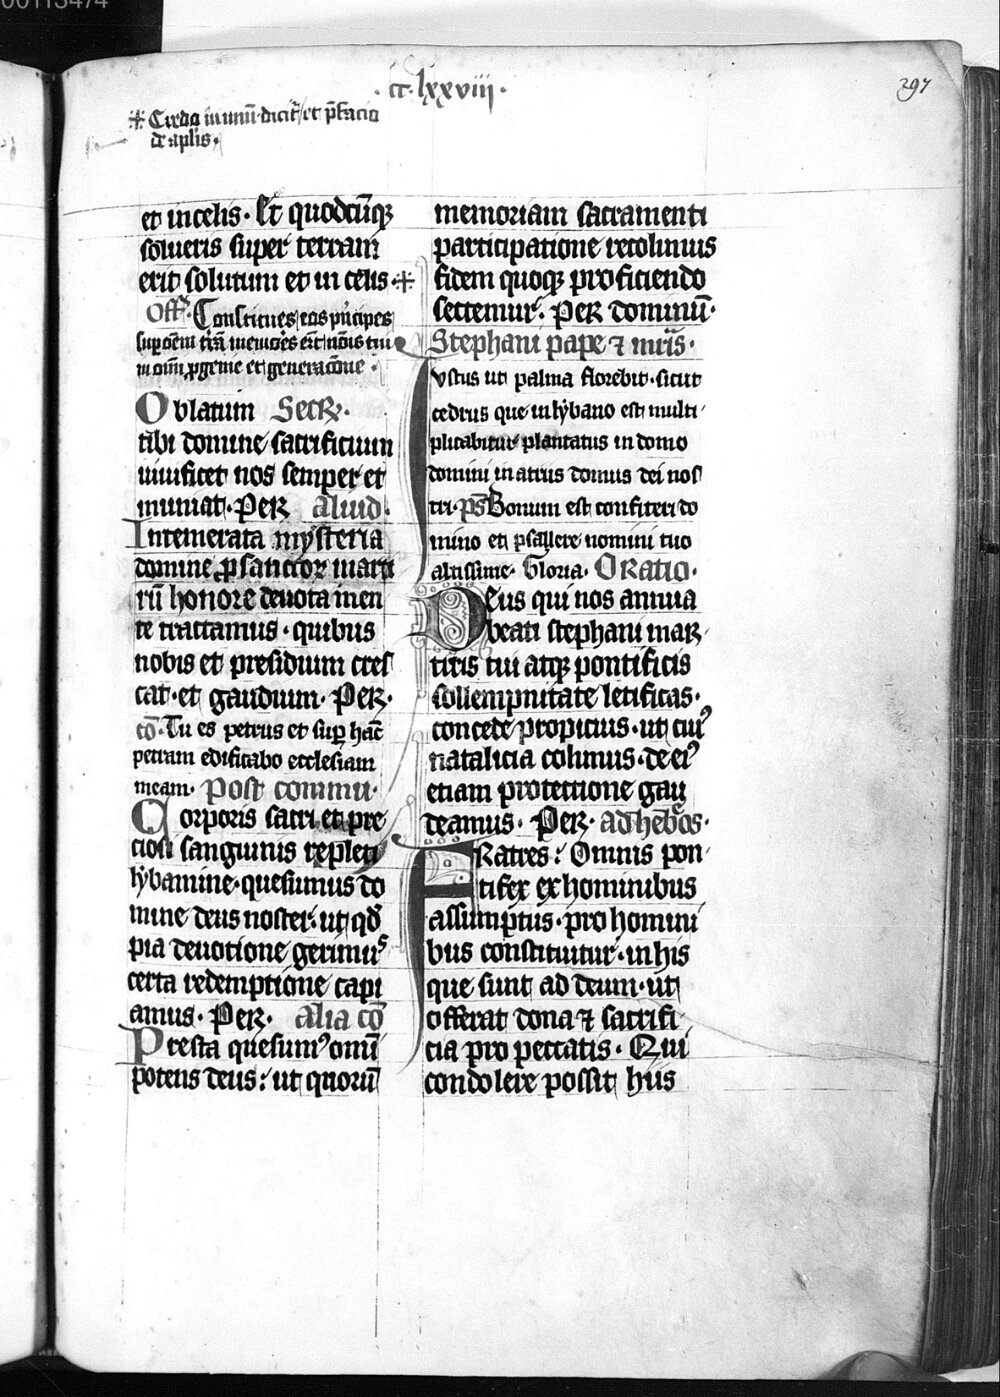 00113474
·cc·lxxviii·
297
⁜ Credo in unū dicit̄ et p̄facio
de apl̄is·
et in celis· Et quodcūqꝫ
solueris super terram
erit solutum et in celis ⁜
Off̄· Constitues eos prīcipes
suꝑ oēm t̄rā memores er̄t nōis tui
in om̄i ꝓgenie et generacōne·
Oblatum Secr̄·
tibi domine sacrificium
uiuificet nos semper et
muniat· Per aliud·
Intemerata mysteria
domine ꝓ sanctoꝝ marti
rū honore deuota men
te tractamus· quibus
nobis et presidium cres
cat· et gaudium· Per·
cō· Tu es petrus et suꝑ hāc
petram edificabo ecclesiam
meam· Post commu·
Corporis sacri et pre
ciosi sanguinis repleti
lybamine· quesumus do
mine deus noster· ut qd̄
pia deuotione gerimus
certa redemptione capi
amus· Per· alia cō
Presta quesumꝰ om̄i
potens deus: ut quorū
memoriam sacramenti
participatione recolimus
fidem quoqꝫ proficiendo
sectemur· Per dominū·
Stephani pape ⁊ mr̄is·
Iustus ut palma florebit· sicut
cedrus que in lybano est multi
plicabitur plantatus in domo
domini in atriis domus dei nos
tri· ps̄ Bonum est confiteri do
mino et psallere nomini tuo
altissime· Gloria· Oratio·
Deus qui nos annua
beati stephani mar
tiris tui atqꝫ pontificis
sollempnitate letificas·
concede propicius· ut cuiꝰ
natalicia colimus· de eiꝰ
etiam protectione gau
deamus· Per· ad heb̄os·
Fratres: Omnis pon
tifex ex hominibus
assumptus· pro homini
bus constituitur· in his
que sunt ad deum· ut
offerat dona ⁊ sacrifi
cia pro peccatis· Qui
condolere possit hiis